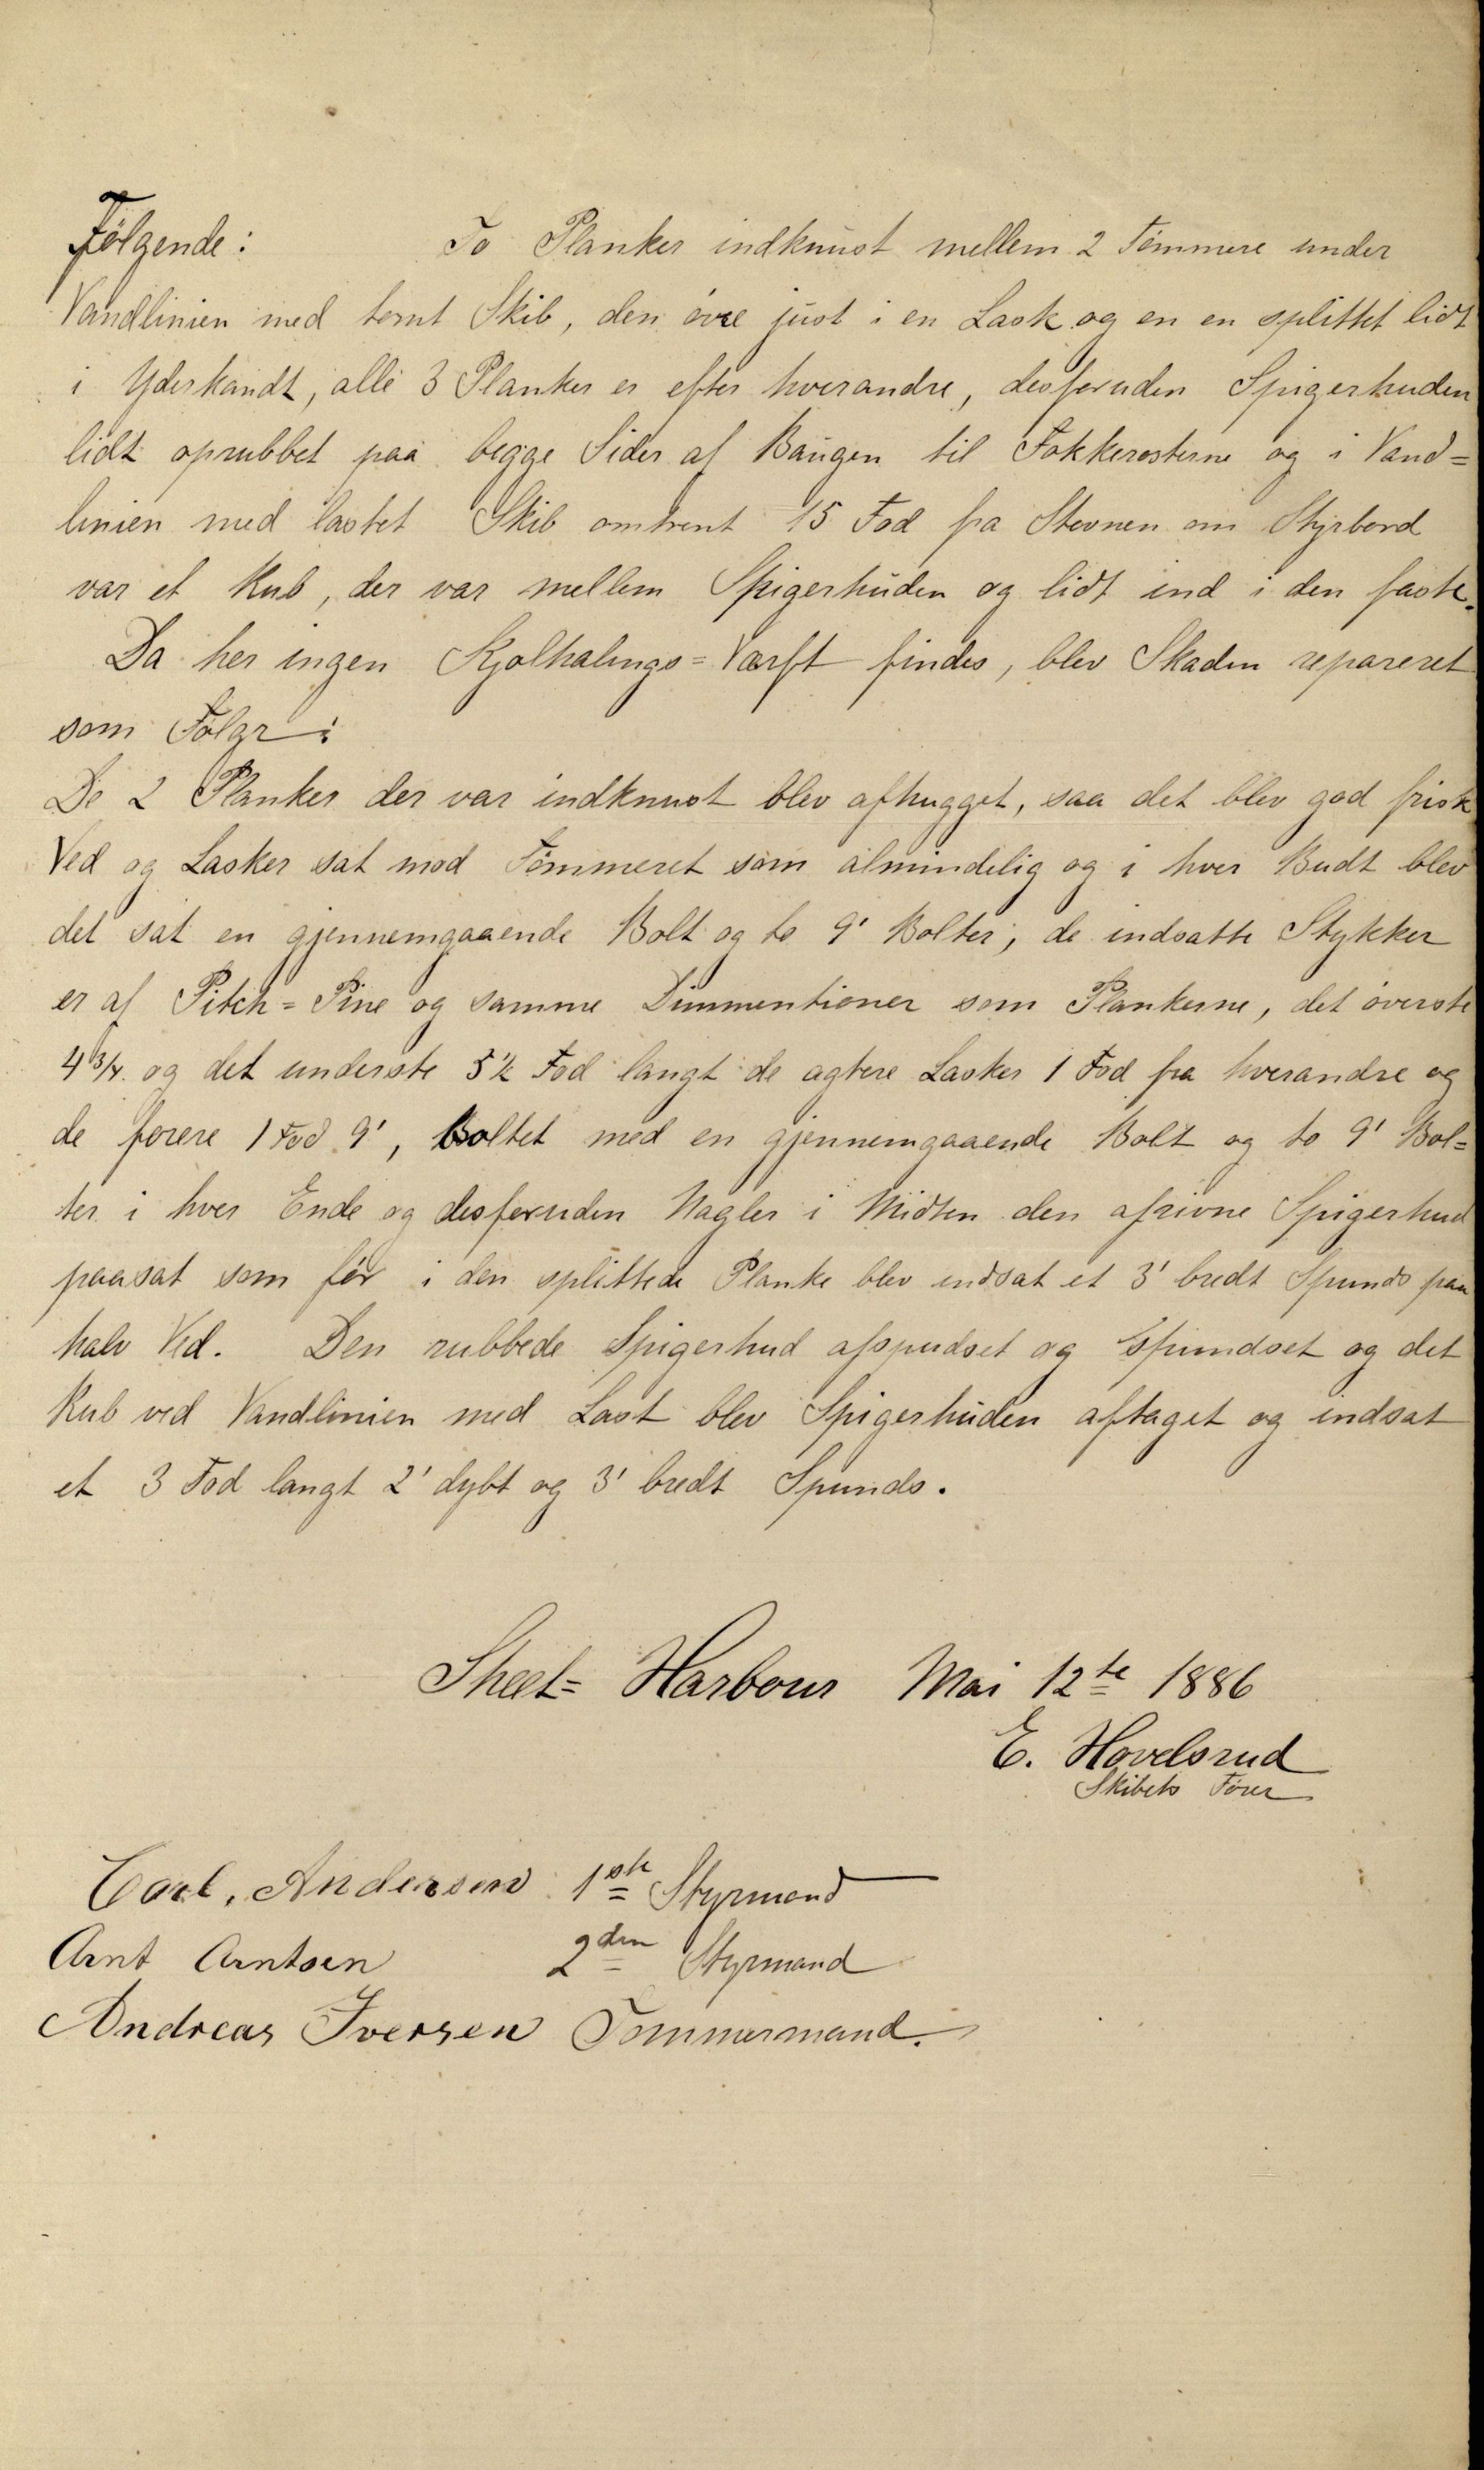 Følgende: To Planker indknust mellem 2 Tømmere under
Vandlinien med tomt Skib, den øvre just i en Lask og en en splittet lidt
i Yderkandt, alle 3 Planker er efter hverandre, desforuden Spigerhuden
lidt oprubbet paa begge Sider af Baugen til Fokkerøsterne og i Vand=
linien med lastet Skib omtrent 15 Fod fra Stevnen om Styrbord
var et Kub, der var mellem Spigerhuden og lidt ind i den faste.
Da her ingen Kjølhalings=Værft findes, blev Skaden repareret
som Følgr:
De 2 Planker der var indknust blev afhugget, saa det blev god frisk
Ved og Lasker sat mod Tømmeret som almindelig og i hver Budt blev
det sat en gjennemgaaende Bolt og to 9' Bolter, de indsatte Stykker
er af Pitch=Pine og samme Dimmentioner som Plankerne, det øverste
4 3/4. og det underste 5 1/2 Fod langt de agtere Lasker 1 Fod fra hverandre og
de forere 1 Fod 9', boltet med en gjennemgaaende Bolt og to 9' Bol=
ter i hver Ende og desforuden Nagler i Midten den afrivne Spigerhud
paasat som før i den splittede Planke blev indsat et 3' bredt Spunds paa
halv Ved. Den rubbede Spigerhud afspudset og spundset og det
Kub ved Vandlinien med Last blev Spigerhuden aftaget og indsat
et 3 Fod langt 2' dybt og 3' bredt Spunds.
Sheet=Harbour Mai 12te 1886
E. Hovelsrud
Skibets Fører
Carl. Andersen 1ste Styrmand
Arnt Arntsen 2den Styrmand
Andreas Iversen Tømmermand.